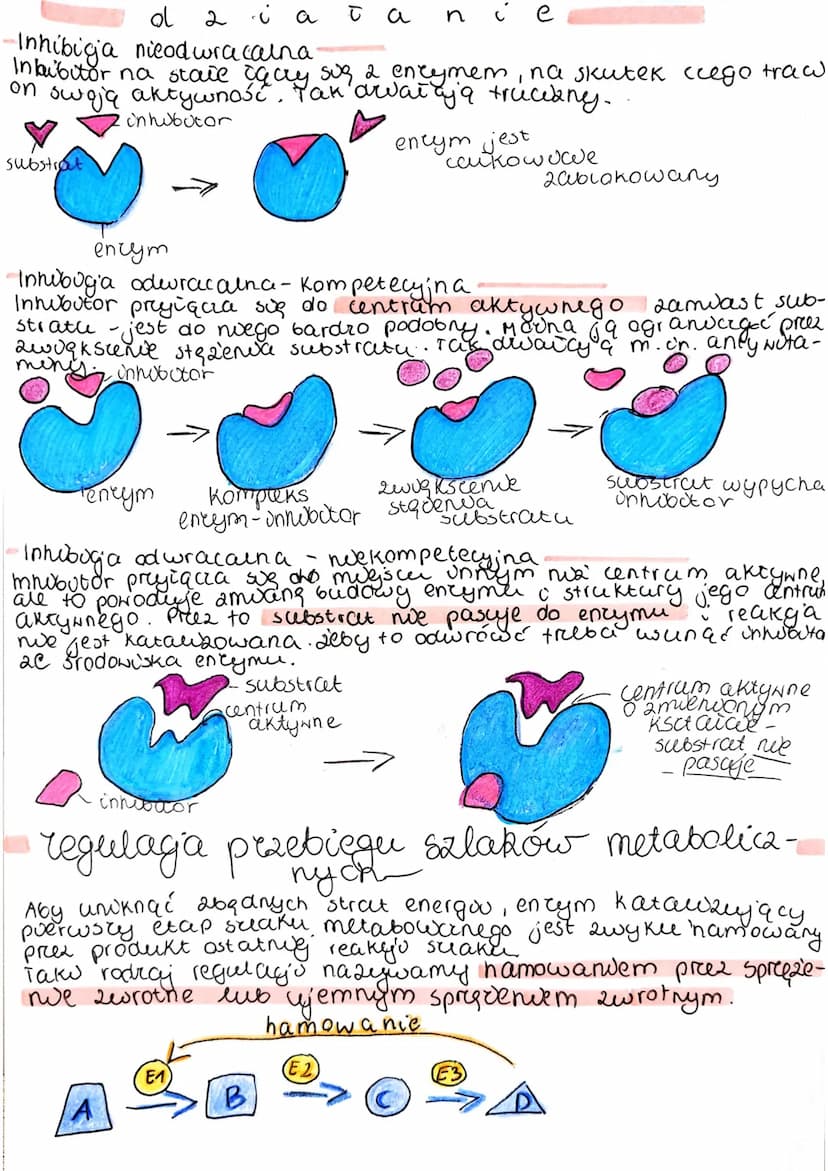 działanie
Inhibicja nieodwracalna
Inhibitor na stałe łączy się z enzymem, na skutek czego traci
on swoją aktywność. Tak działają trucizny.
inhibitor
substrat
enzym jest
całkowicie
zablokowany
enzym
Inhibicja odwracalna - kompetecyjna
Inhibitor przyłącza się do centrum aktywnego zamiast sub-
stratu - jest do niego bardzo podobny. Można ją ograniczać przez
zwiększenie stężenia substratu. Tak działają m.in. antywita-
miny.
inhibitor
enzym
kompleks
enzym-inhibitor
zwiększenie
stężenia
substratu
substrat wypycha
inhibitor
Inhibicja odwracalna - niekompetecyjna
Inhibitor przyłącza się do miejscu innym niż centrum aktywne,
ale to powoduje zmianę budowy enzymu i struktury jego centrum
aktywnego. Przez to substrat nie pasuje do enzymu i reakcja
nie jest katalizowana. Żeby to odwrócić trzeba usunąć inhibitor
ze środowiska enzymu.
substrat
centrum
aktywne
inhibitor
centrum aktywne
o zmienionym
kształcie -
substrat nie
pasuje
regulacja przebiegu szlaków metabolicz-
nych
Aby uniknąć zbędnych strat energii, enzym katalizujący
pierwszy etap szlaku metabolicznego jest zwykle hamowany
przez produkt ostatniej reakcji szlaku.
Taki rodzaj regulacji nazywamy hamowaniem przez sprzęże-
nie zwrotne lub ujemnym sprzężeniem zwrotnym.
hamowanie
E1 E2 E3
A B C D